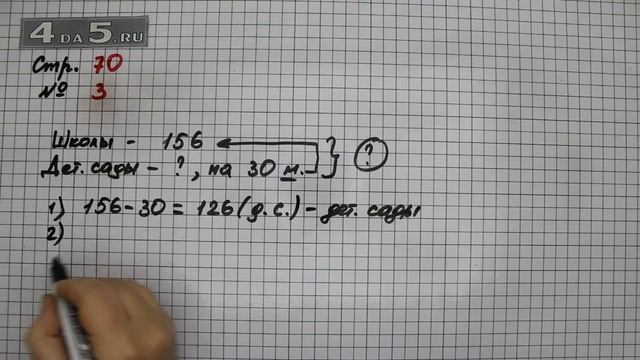 4DA5.RU
Стр. 70
№ 3
Школы - 156
Дет. сады - ?, на 30 м. } ?
1) 156-30=126(д.с.)-дет. сады
2)